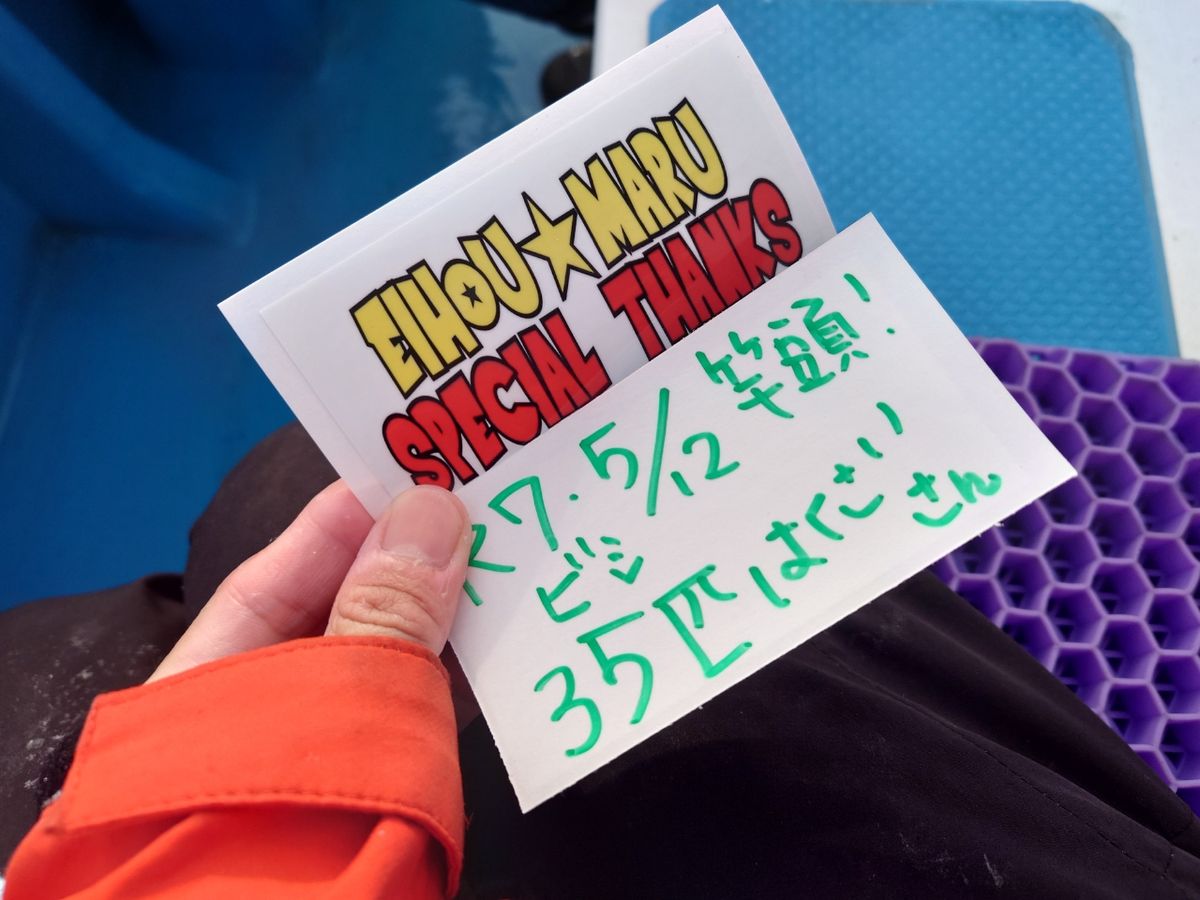 EIHOU★MARU
SPECIAL THANKS
R7.5/12 竿頭!
ビシ
35匹 はくさい さん